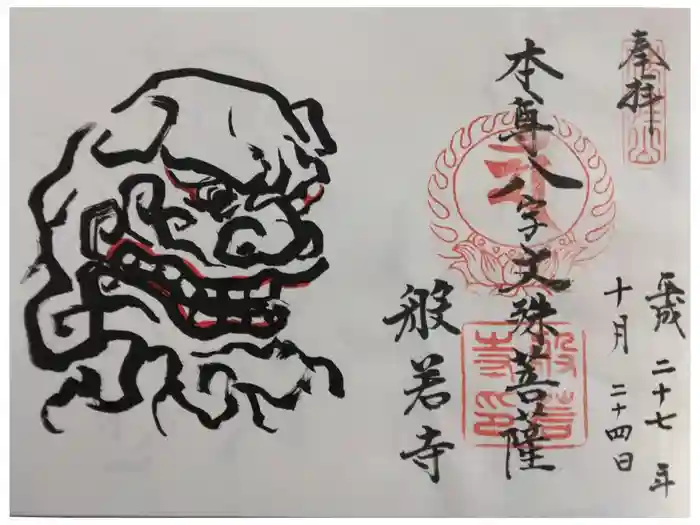 奉拝
平成二十七年
十月二十四日
本尊八字文殊菩薩
般若寺
般若寺印